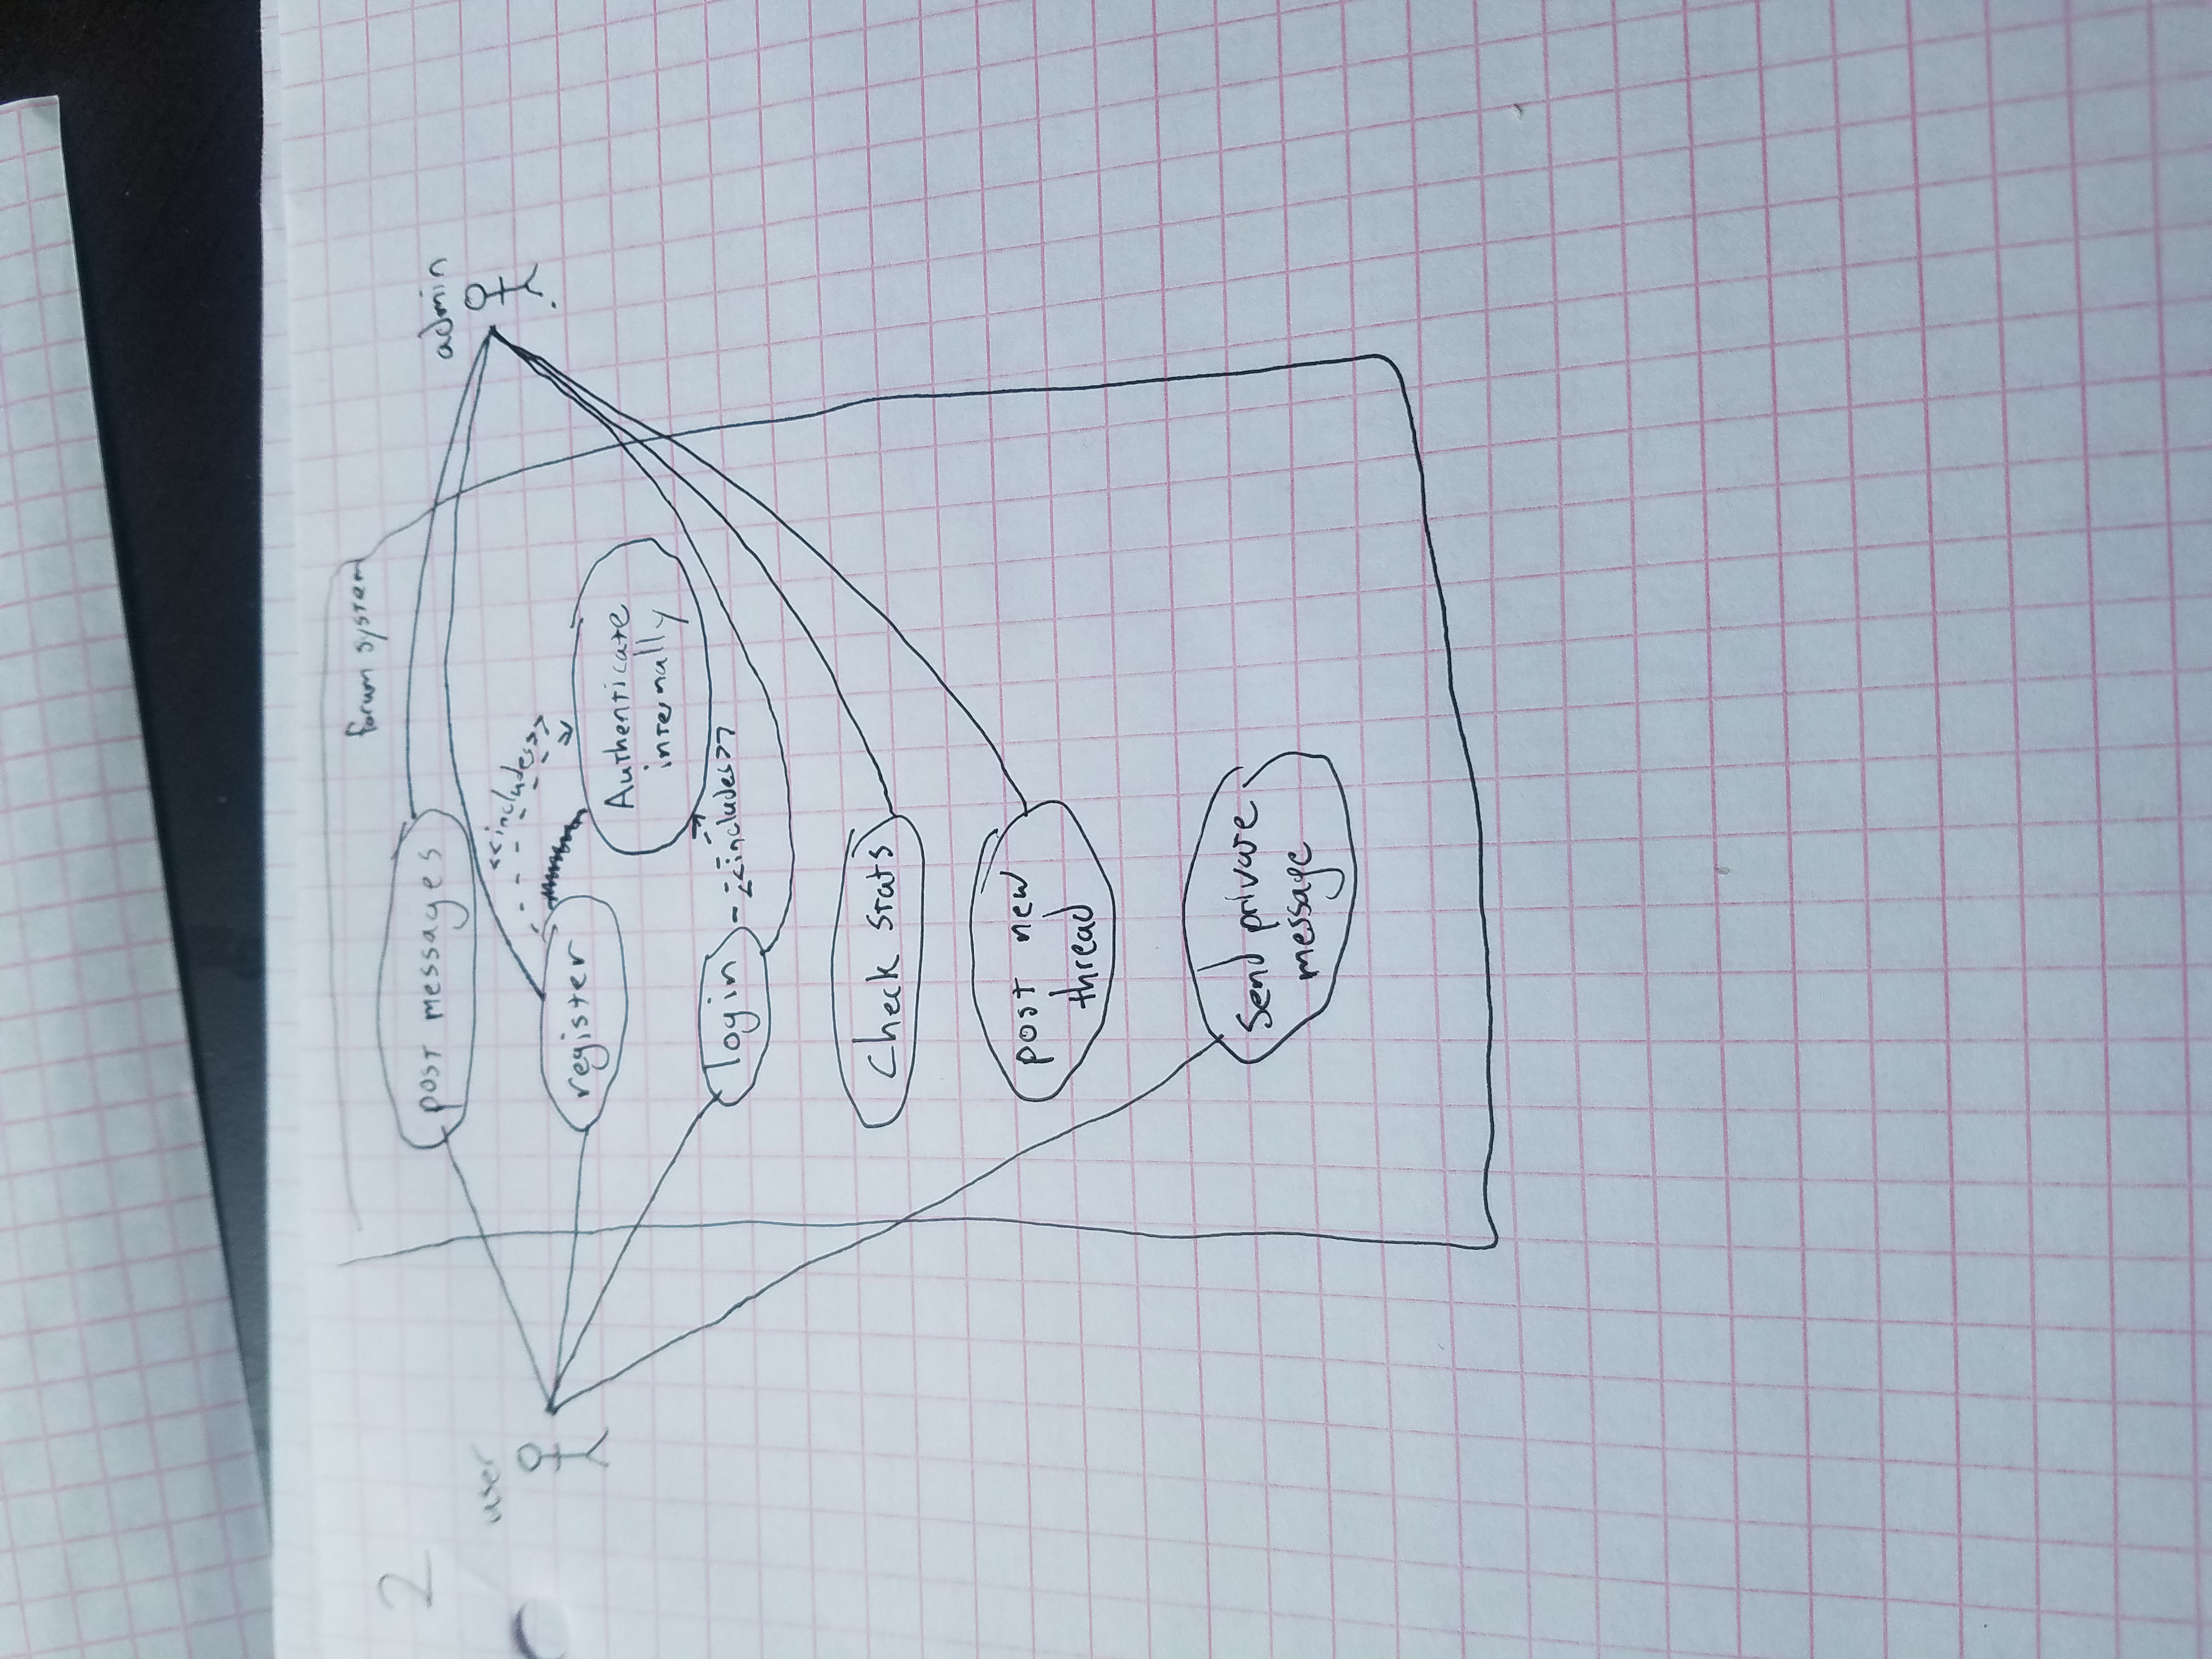 2
forum system
post messages
admin
user
<<includes>>
register
Authenticate
internally
login
<<includes>>
Check stats
post new
thread
Send private
message